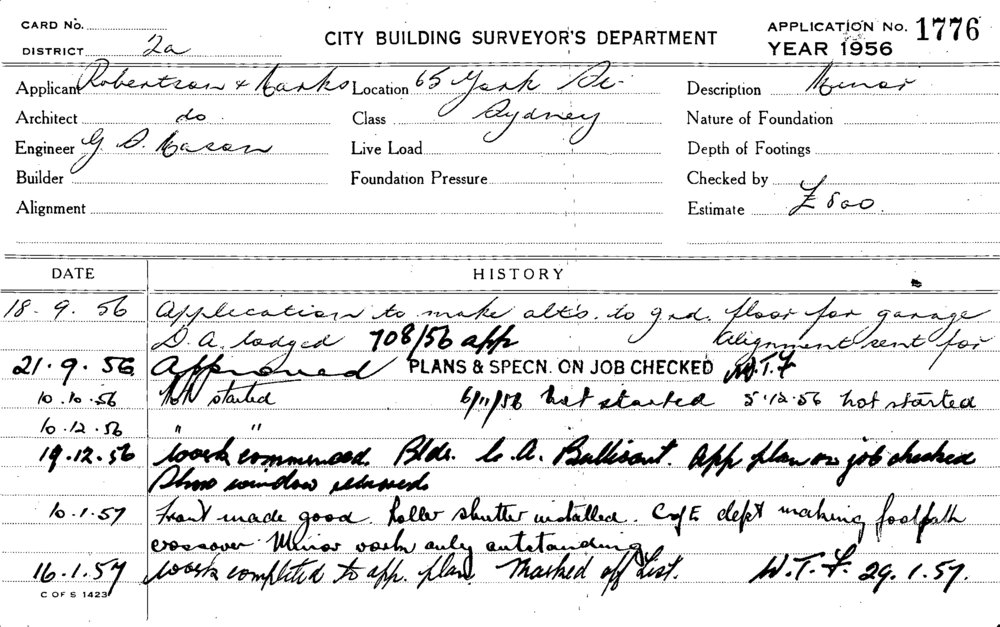 CARD No.
DISTRICT 2a
CITY BUILDING SURVEYOR'S DEPARTMENT
APPLICATION No. 1776
YEAR 1956
Applicant Robertson + Marks Location 65 York St. Description Minor
Architect do Class Sydney Nature of Foundation
Engineer G. D. Mason Live Load Depth of Footings
Builder Foundation Pressure Checked by
Alignment Estimate £800.
DATE HISTORY
18. 9. 56 Application to make alts. to grd. floor for garage
D. A. lodged 708/56 app Alignment sent for
21. 9. 56 Approved PLANS & SPECN. ON JOB CHECKED W.T.F
10.10.56 Not started 6/11/56 not started 5.12.56 not started
10.12.56 " "
19.12.56 Work commenced. Bldr. C. A. Bullivant. App plan on job checked
Show window removed
10.1.57 Front made good. Roller shutter installed. C of E dept making footpath
crossover Minor work only outstanding
16.1.57 Work completed to app. plan. Marked off List. W.T.F. 29.1.57.
C OF S 1423